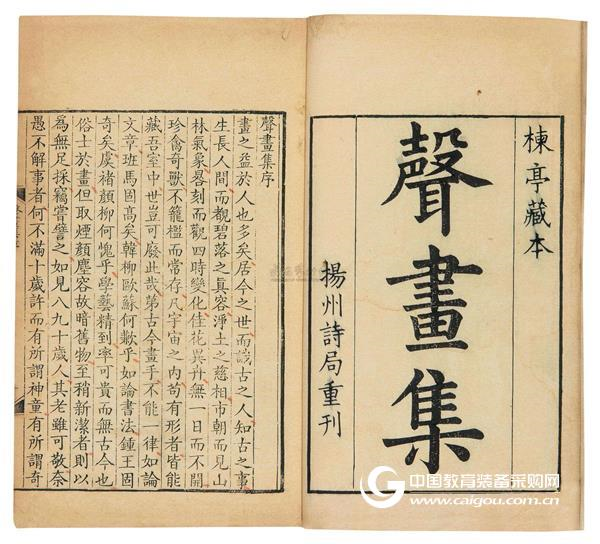 楝亭藏本
聲畫集
揚州詩局重刊
聲畫集序
畫之益於人也多矣居今之世而識古之人知古之事
生長人間而觀碧落之真容淨土之慈相市朝而見山
林氣象晷刻而觀四時變化佳花異卉無一日而不開
珍禽奇獸不籠檻而常存凡宇宙之內苟有形者皆能
藏吾室中世豈可廢此哉第古今畫手不能一律如論
文章班馬固髙矣韓柳歐蘇何歉乎如論書法鍾王固
奇矣虞褚顏柳何愧乎學藝精到率可貴而無古今也
俗士於畫但取煙顏塵容故暗舊物至稍新潔者則以
為無足採竊嘗譬之如見八九十歲人其老雖可敬奈
愚不解事者何不滿十歲許而有所謂神童有所謂奇
中国教育装备采购网
www.caigou.com.cn